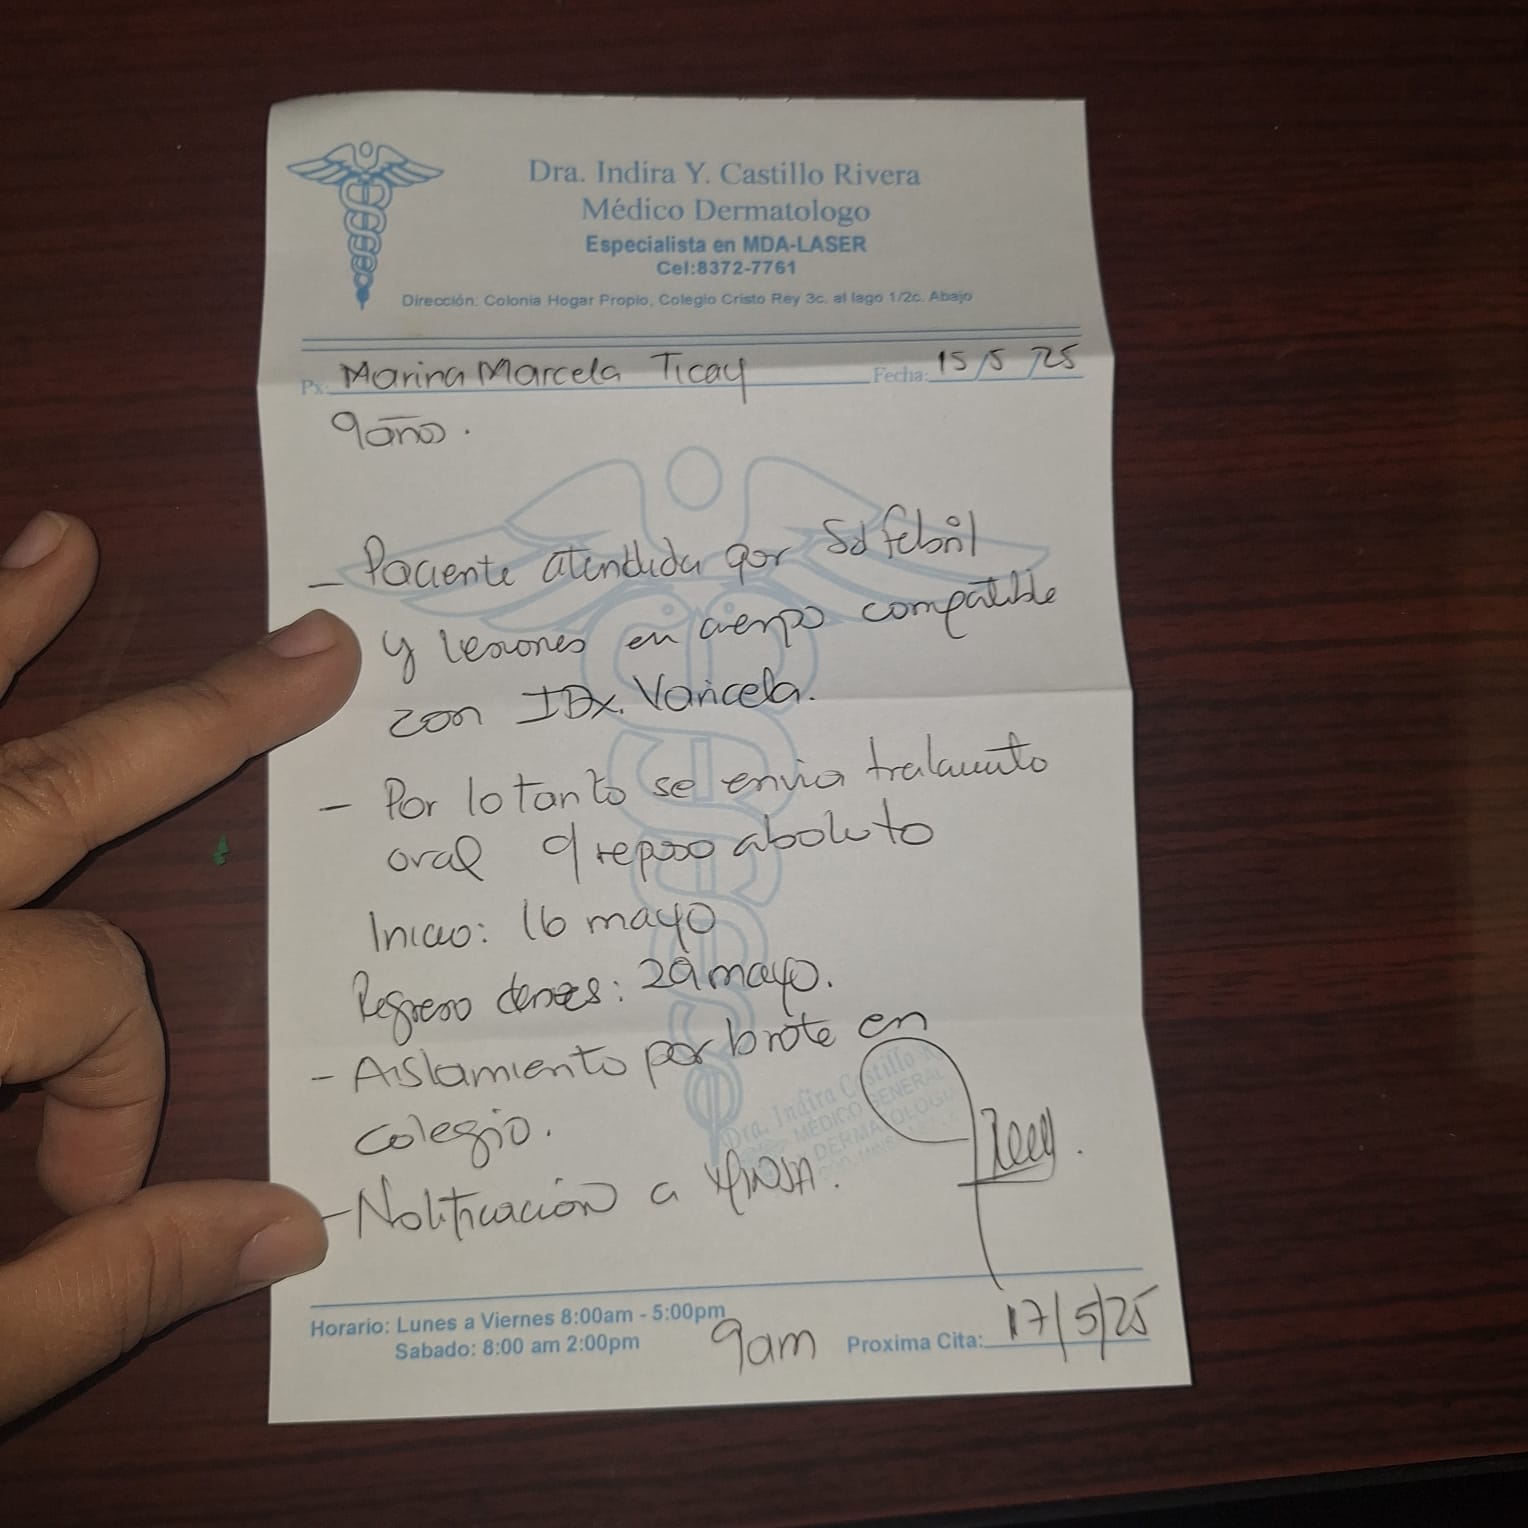 Dra. Indira Y. Castillo Rivera
Médico Dermatologo
Especialista en MDA-LASER
Cel:8372-7761
Dirección: Colonia Hogar Propio, Colegio Cristo Rey 3c. al lago 1/2c. Abajo
Px: Marina Marcela Ticay Fecha: 15/5/25
9años.
- Paciente atendida por Sd febril
y lesiones en cuerpo compatible
con IDx. Varicela.
- Por lo tanto se envia tratamiento
oral y reposo aboluto
Inicio: 16 mayo
Regreso clases: 29 mayo.
- Aislamiento por brote en
colegio.
Dra. Indira Castillo R
MÉDICO GENERAL
DERMATOLOGO
- Notificación a MINSA.
Horario: Lunes a Viernes 8:00am - 5:00pm
Sabado: 8:00 am 2:00pm
9am Proxima Cita: 17/5/25